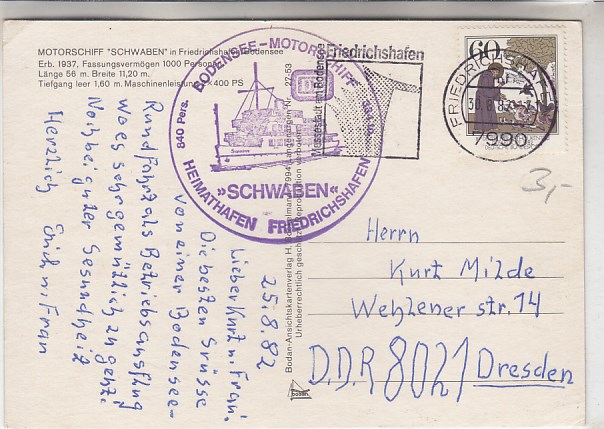 MOTORSCHIFF "SCHWABEN" in Friedrichshafen/Bodensee
Erb. 1937, Fassungsvermögen 1000 Personen
Länge 56 m. Breite 11,20 m.
Tiefgang leer 1,60 m. Maschinenleistung 2×400 PS
BODENSEE-MOTORSCHIFF
840 Pers.
DB
»SCHWABEN«
HEIMATHAFEN FRIEDRICHSHAFEN
Friedrichshafen
Messestadt am Bodensee
60
FRIEDRICHSHAFEN
30.8.82
7990
3,-
25.8.82
Lieber Kurt u. Frau!
Die besten Grüsse
von einer Bodensee-
Rundfahrt als Betriebsausflug
wo es sehr gemütlich zu geht.
Noch bei guter Gesundheit
Herzlich Erich u. Frau
Bodan-Ansichtskartenverlag H.
Urheberrechtlich geschützt Reproduktion verboten
bodan
Herrn
Kurt Milde
Wehlener str. 14
D.D.R 8021 Dresden